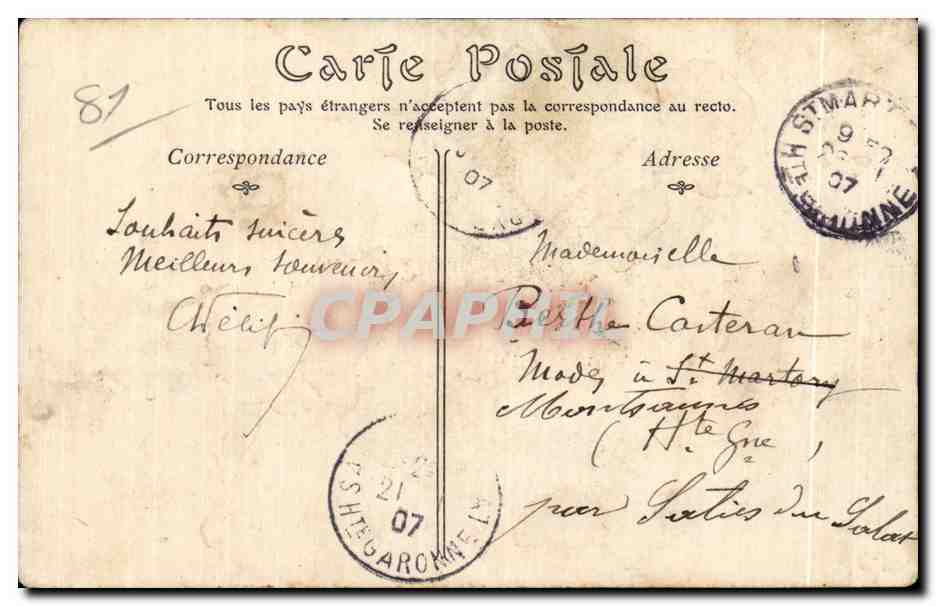 Carte Postale
Tous les pays étrangers n'acceptent pas la correspondance au recto.
Se renseigner à la poste.
81
Correspondance
Souhaits sincères
Meilleurs souvenirs
Adresse
Mademoiselle
Berthe Casteran
Modes à St Martory
Montsaunès
(Hte Gne)
par Salies du Salat
ST MART
9
07
HTE GARONNE
07
21
07
HTE GARONNE
CPAPHIL